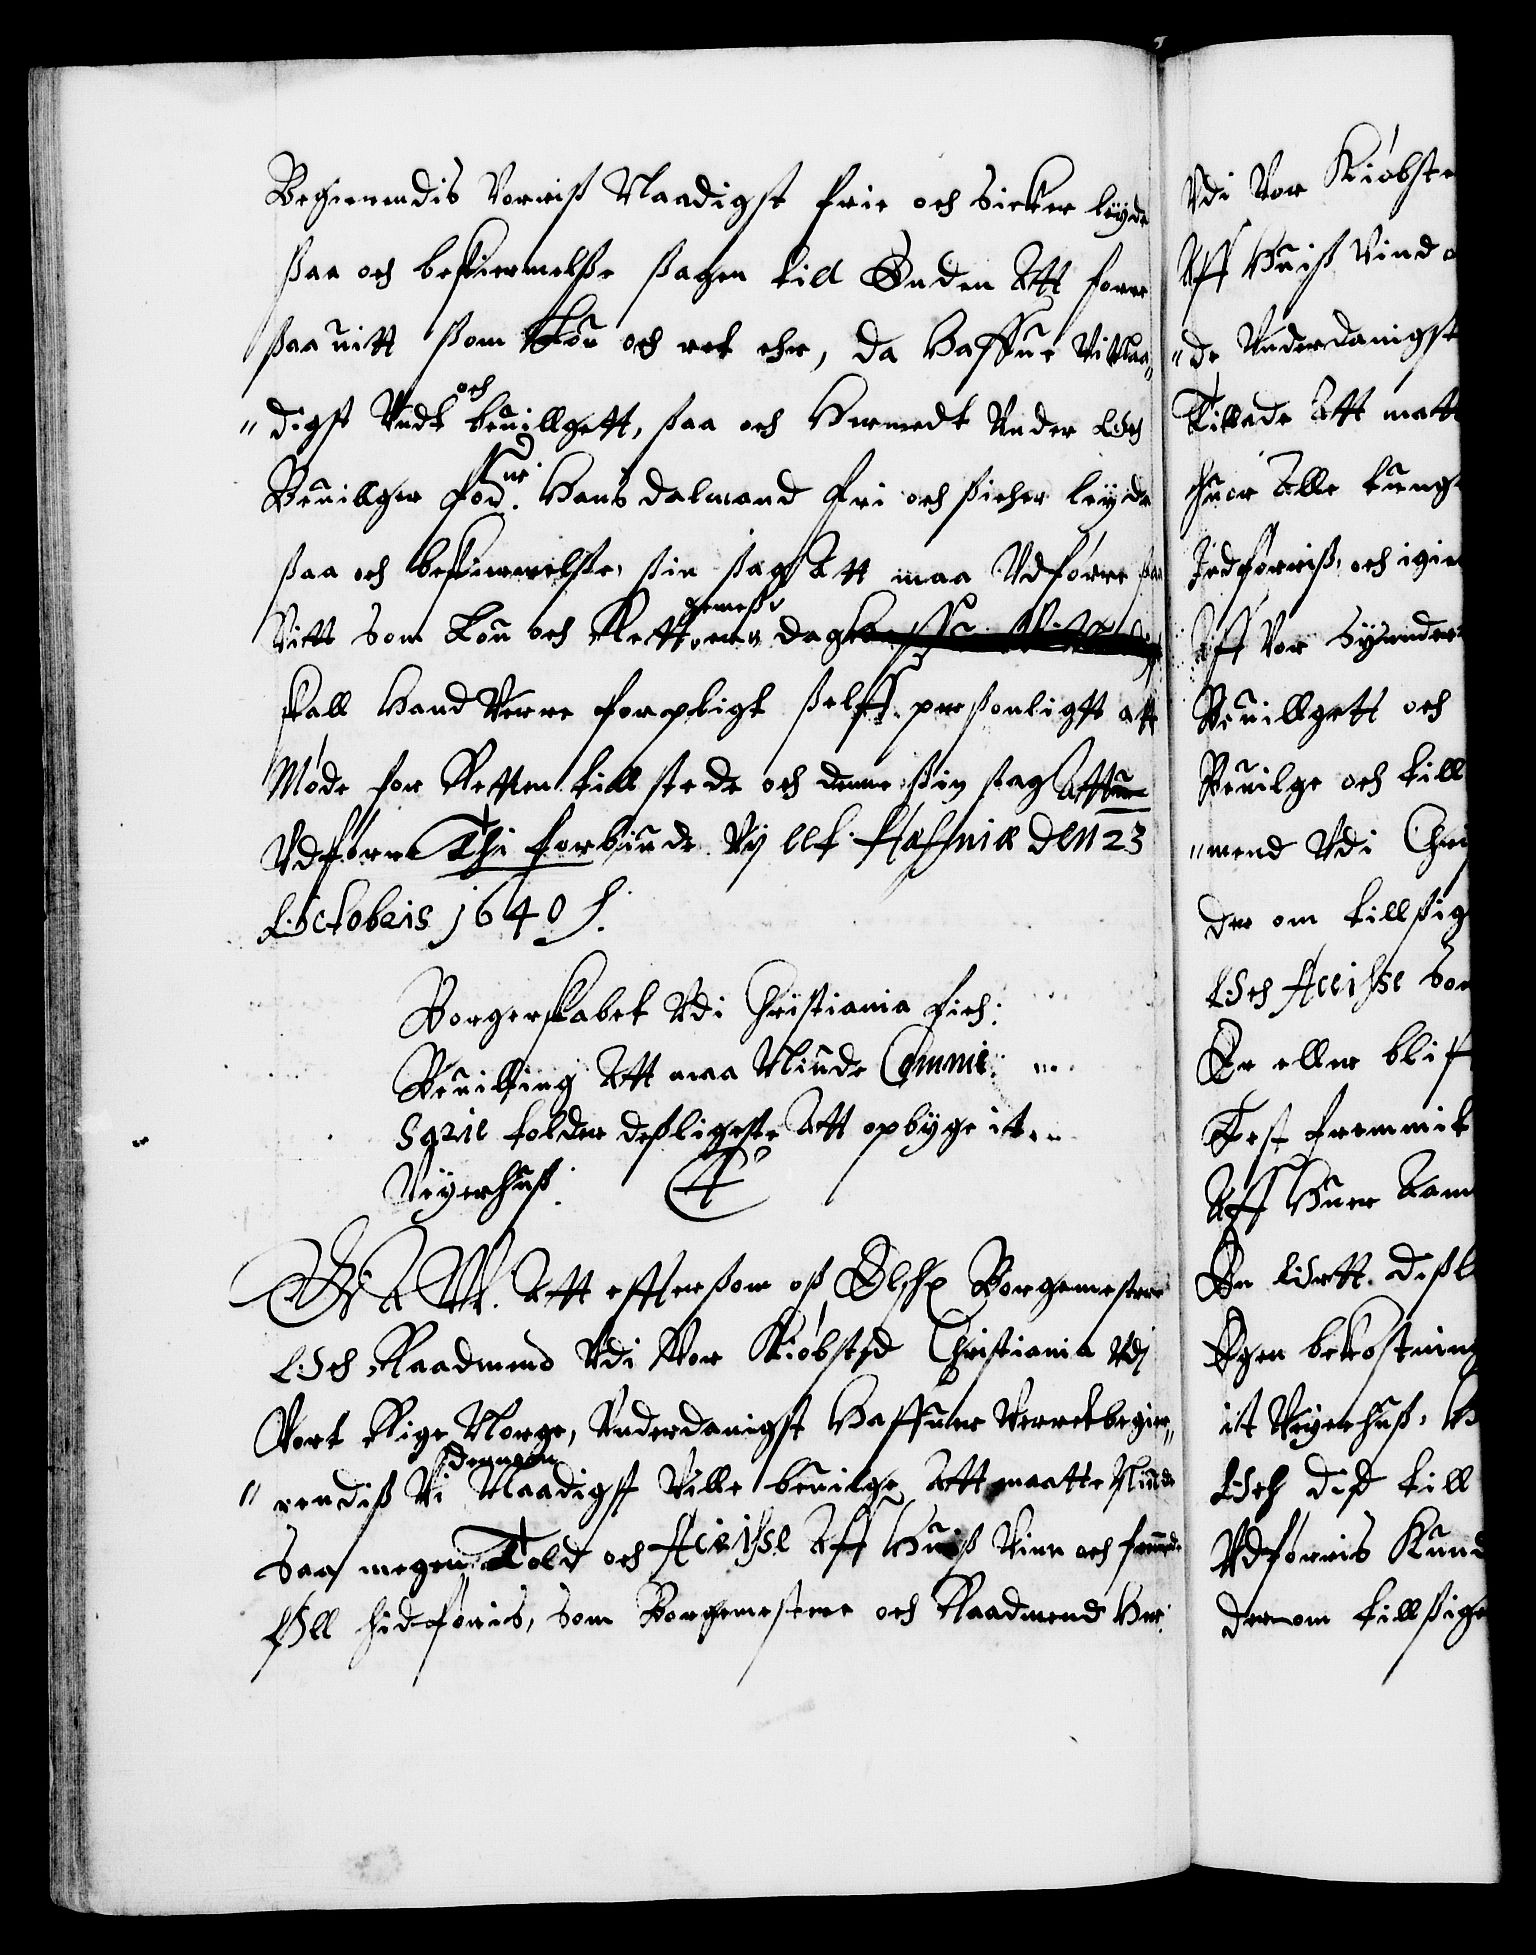 Begierendis Vorriß Naadigst frie och Sicker leyde
ßaa och beskiermelße ßagen till Enden Att forre
ßaa uitt ßom Lou och ret ehr, da Haffue Vi Naa„
„digst Undt och beuillgett, ßaa och Hermedt Under Och
Beuillger for.ne Hans dalmand fri och ßicher leyde
ßaa och beskiermelße, ßin ßag Att maa Udførre ßaa
Vitt Som Lou och Rett gemeß er, dog
skall Hand Verre forpligt ßelff perßonligst att
Møde for Retten till stede och denne ßin ßag Att
Udførre Thi forbiude Vij etc. Hafniæ den 23
Octobris 1640.
Borgerskabet Udi Christiania fich
Beuilling Att maa Niude Commi„
Sarie tolder desligeste Att opbyge it
Veyerhuß.
G A W. Att effterßom oß Elsch: Borgemestere
Och Raadmend Udi Vor Kiøbsted Christiania Udj
Vort Rige Norge, Underdanigst Haffuer Verret begier„
„rendiß Vi dennem Naadigst Ville beuilge Att maatte Niude
Saa megen Told och Accisse Aff Huiß Vinn och fremmede
Øll hid føris, Som Borgemestere och Raadmend Her
Udi Vor Kiøbste
Aff Huiß Vind o
„de Underdanigst
Tillade Att matt
Huor Alle tung
Indførriß, och igie
Aff Vor Synnder
Beuillgett och
Beuilge och till
„mend Udi Chri
der om tillßig
Och Accisse Son
Er eller blif
Test fremmit
Aff Huer Aam
En Ortt. deßl
Egen bekostning
it Veyerhuß, H
Och diß till
Udførris Kund
der om tillßige